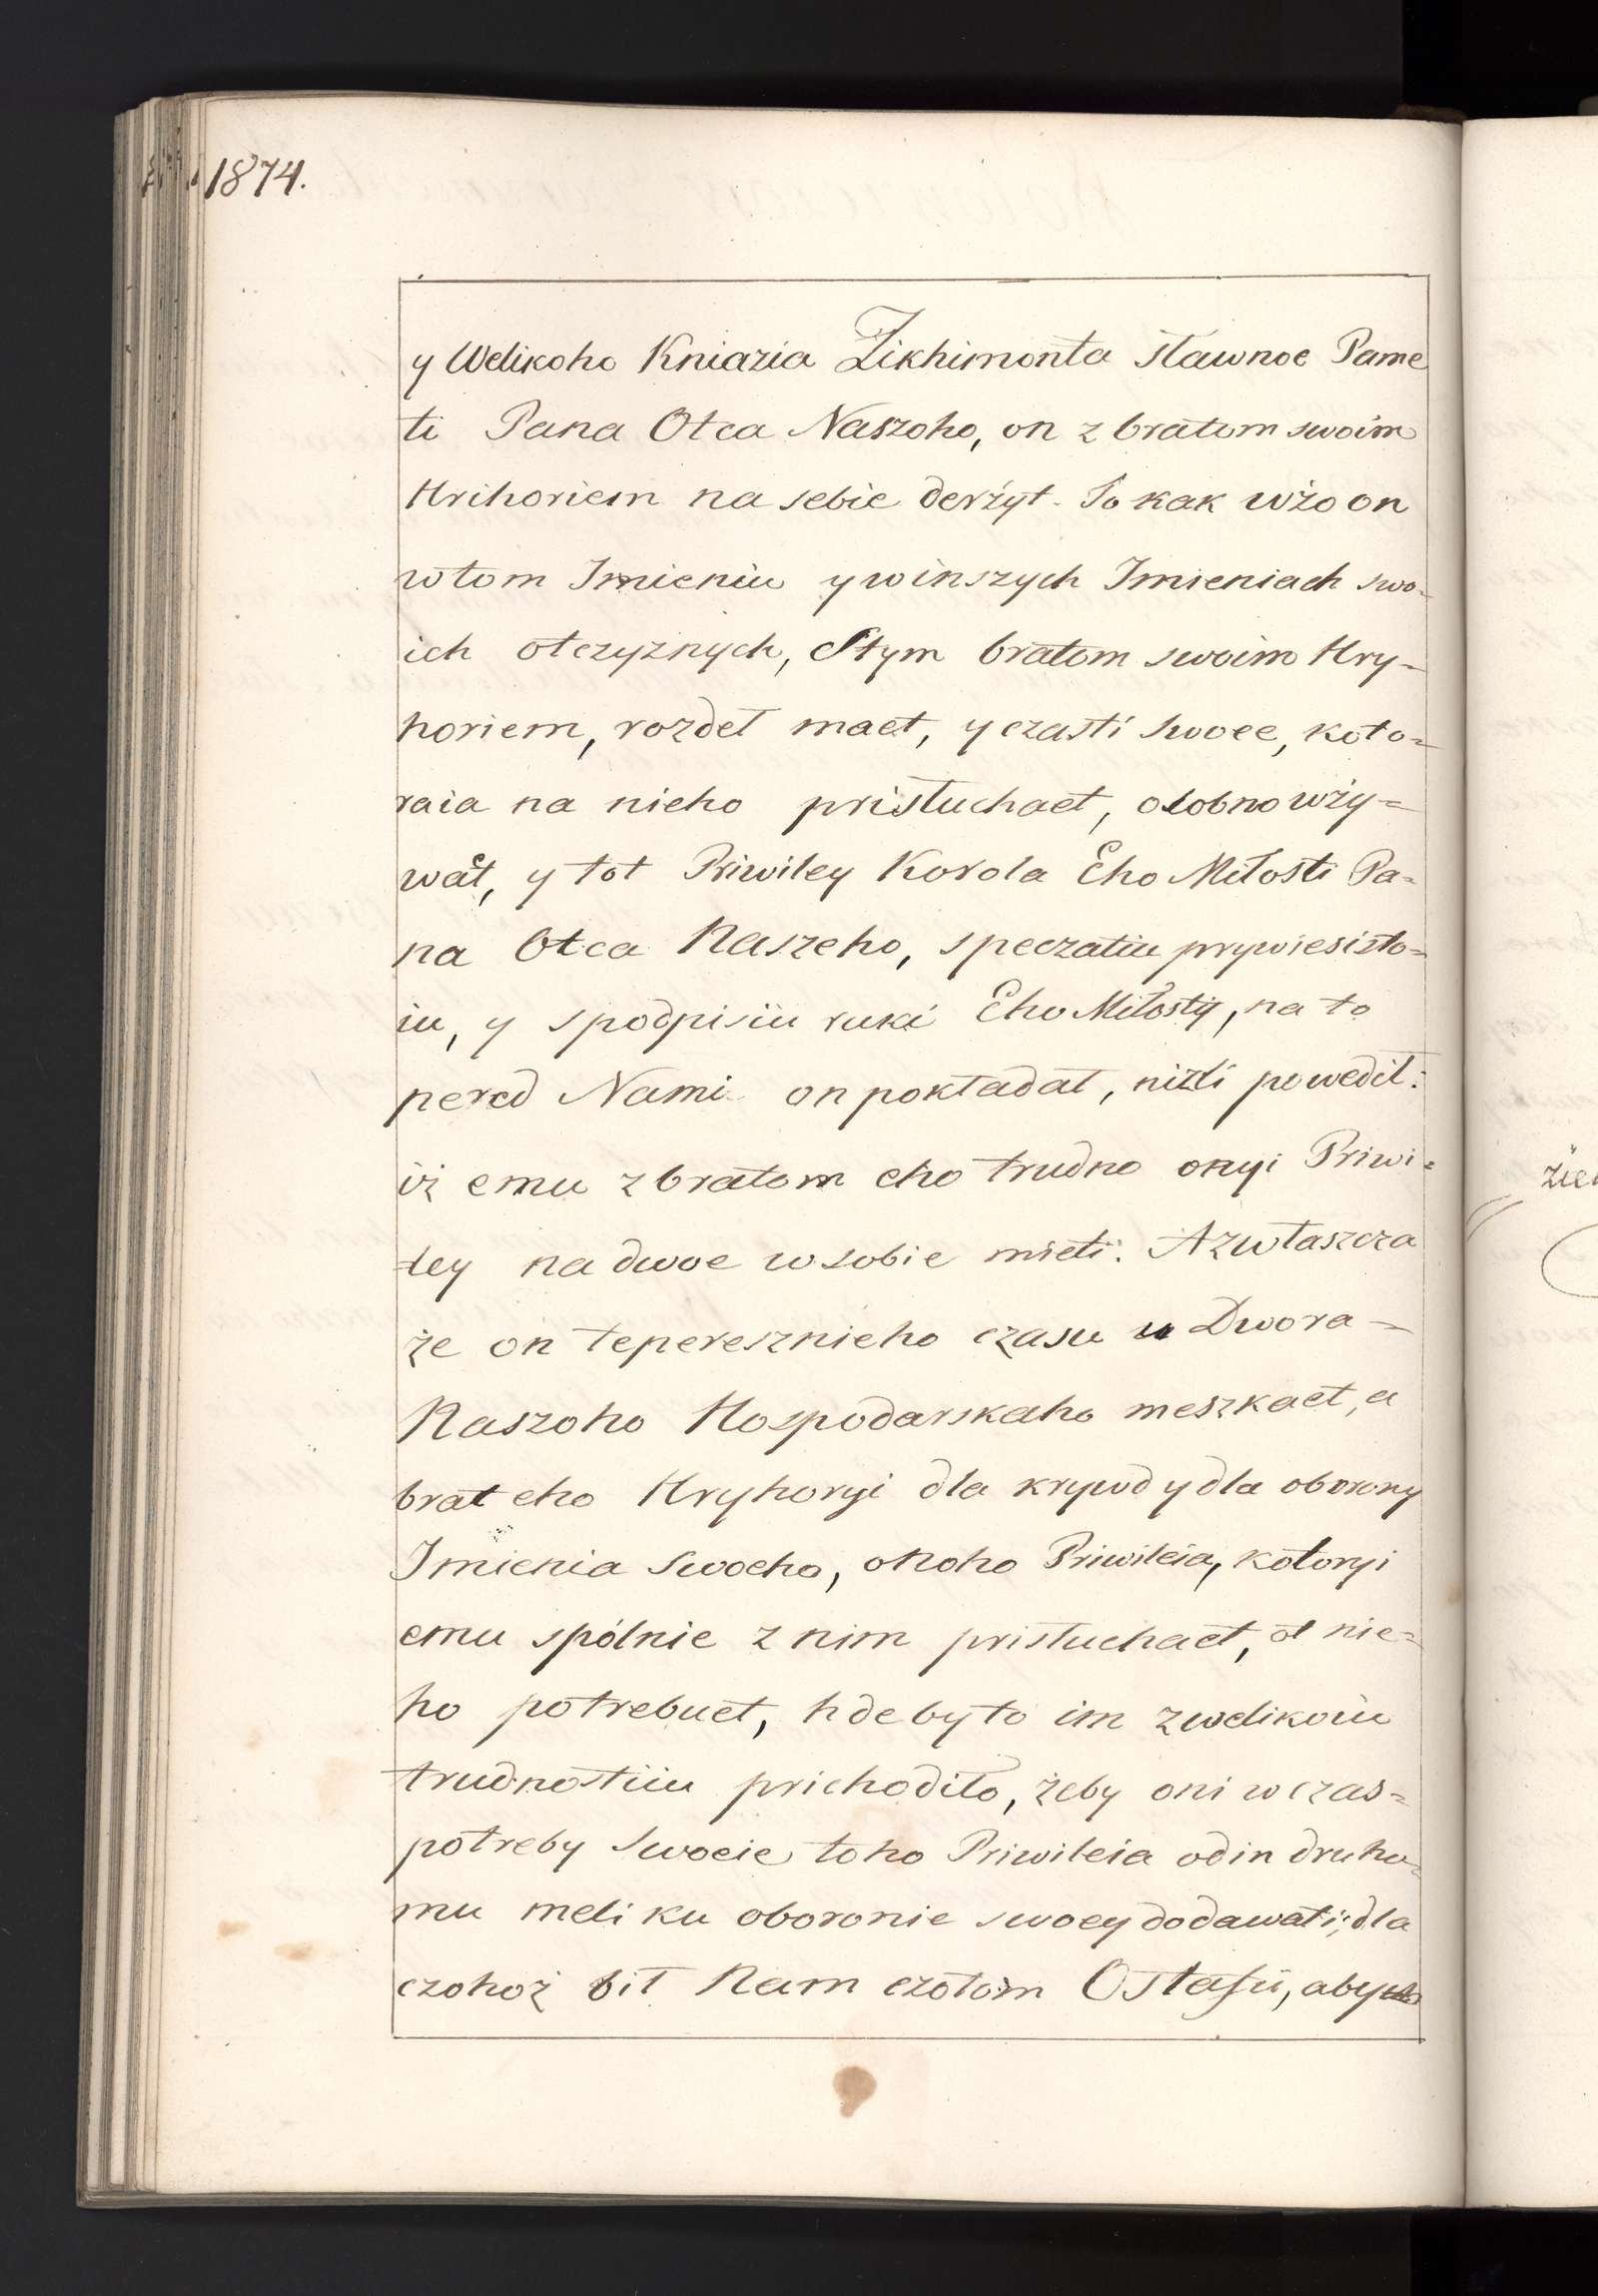 1874.
y Welikoho Kniazia Żikhimonta sławnoe Pame
ti Pana Otca Naszoho, on z bratom swoim
Hrihoriem na sebie derżyt. To kak wżo on
w tom Imieniu y winszych Imieniach swo-
ich otczyznych, Stym bratom swoim Hry-
horiem, rozdeł maet, y czasti swoee, koto=
raia na nieho prisłuchaet, osobno wży=
waet, y tot Priwiley Korola Eho Miłosti Pa=
na Otca Naszeho, s peczatiu prywiesisto=
iu, y s podpisiu ruki Eho Miłosty, na to
pered Nami on pokładał, niżli powedił:
iż emu z bratom eho trudno onyi Priwi=
ley na dwoe w sobie mieti. A zwłaszcza
że on teperesznieho czasu u Dwora=
Naszoho Hospodarskaho meszkaet, a
brat eho Hryhoryi dla krywd y dla oborony
Imienia Swoeho, onoho Priwileia, kotoryi
emu spólnie z nim prisłuchaet, ot nie=
ho potrebuet, hde by to im z welikoiu
trudnostiiu prichodiło, żeby oni w czas=
potreby Swoeie toho Priwileia odin druho=
mu meli ku oboronie swoey dodawati; dla
czohoż bił Nam czołom Ostafii,